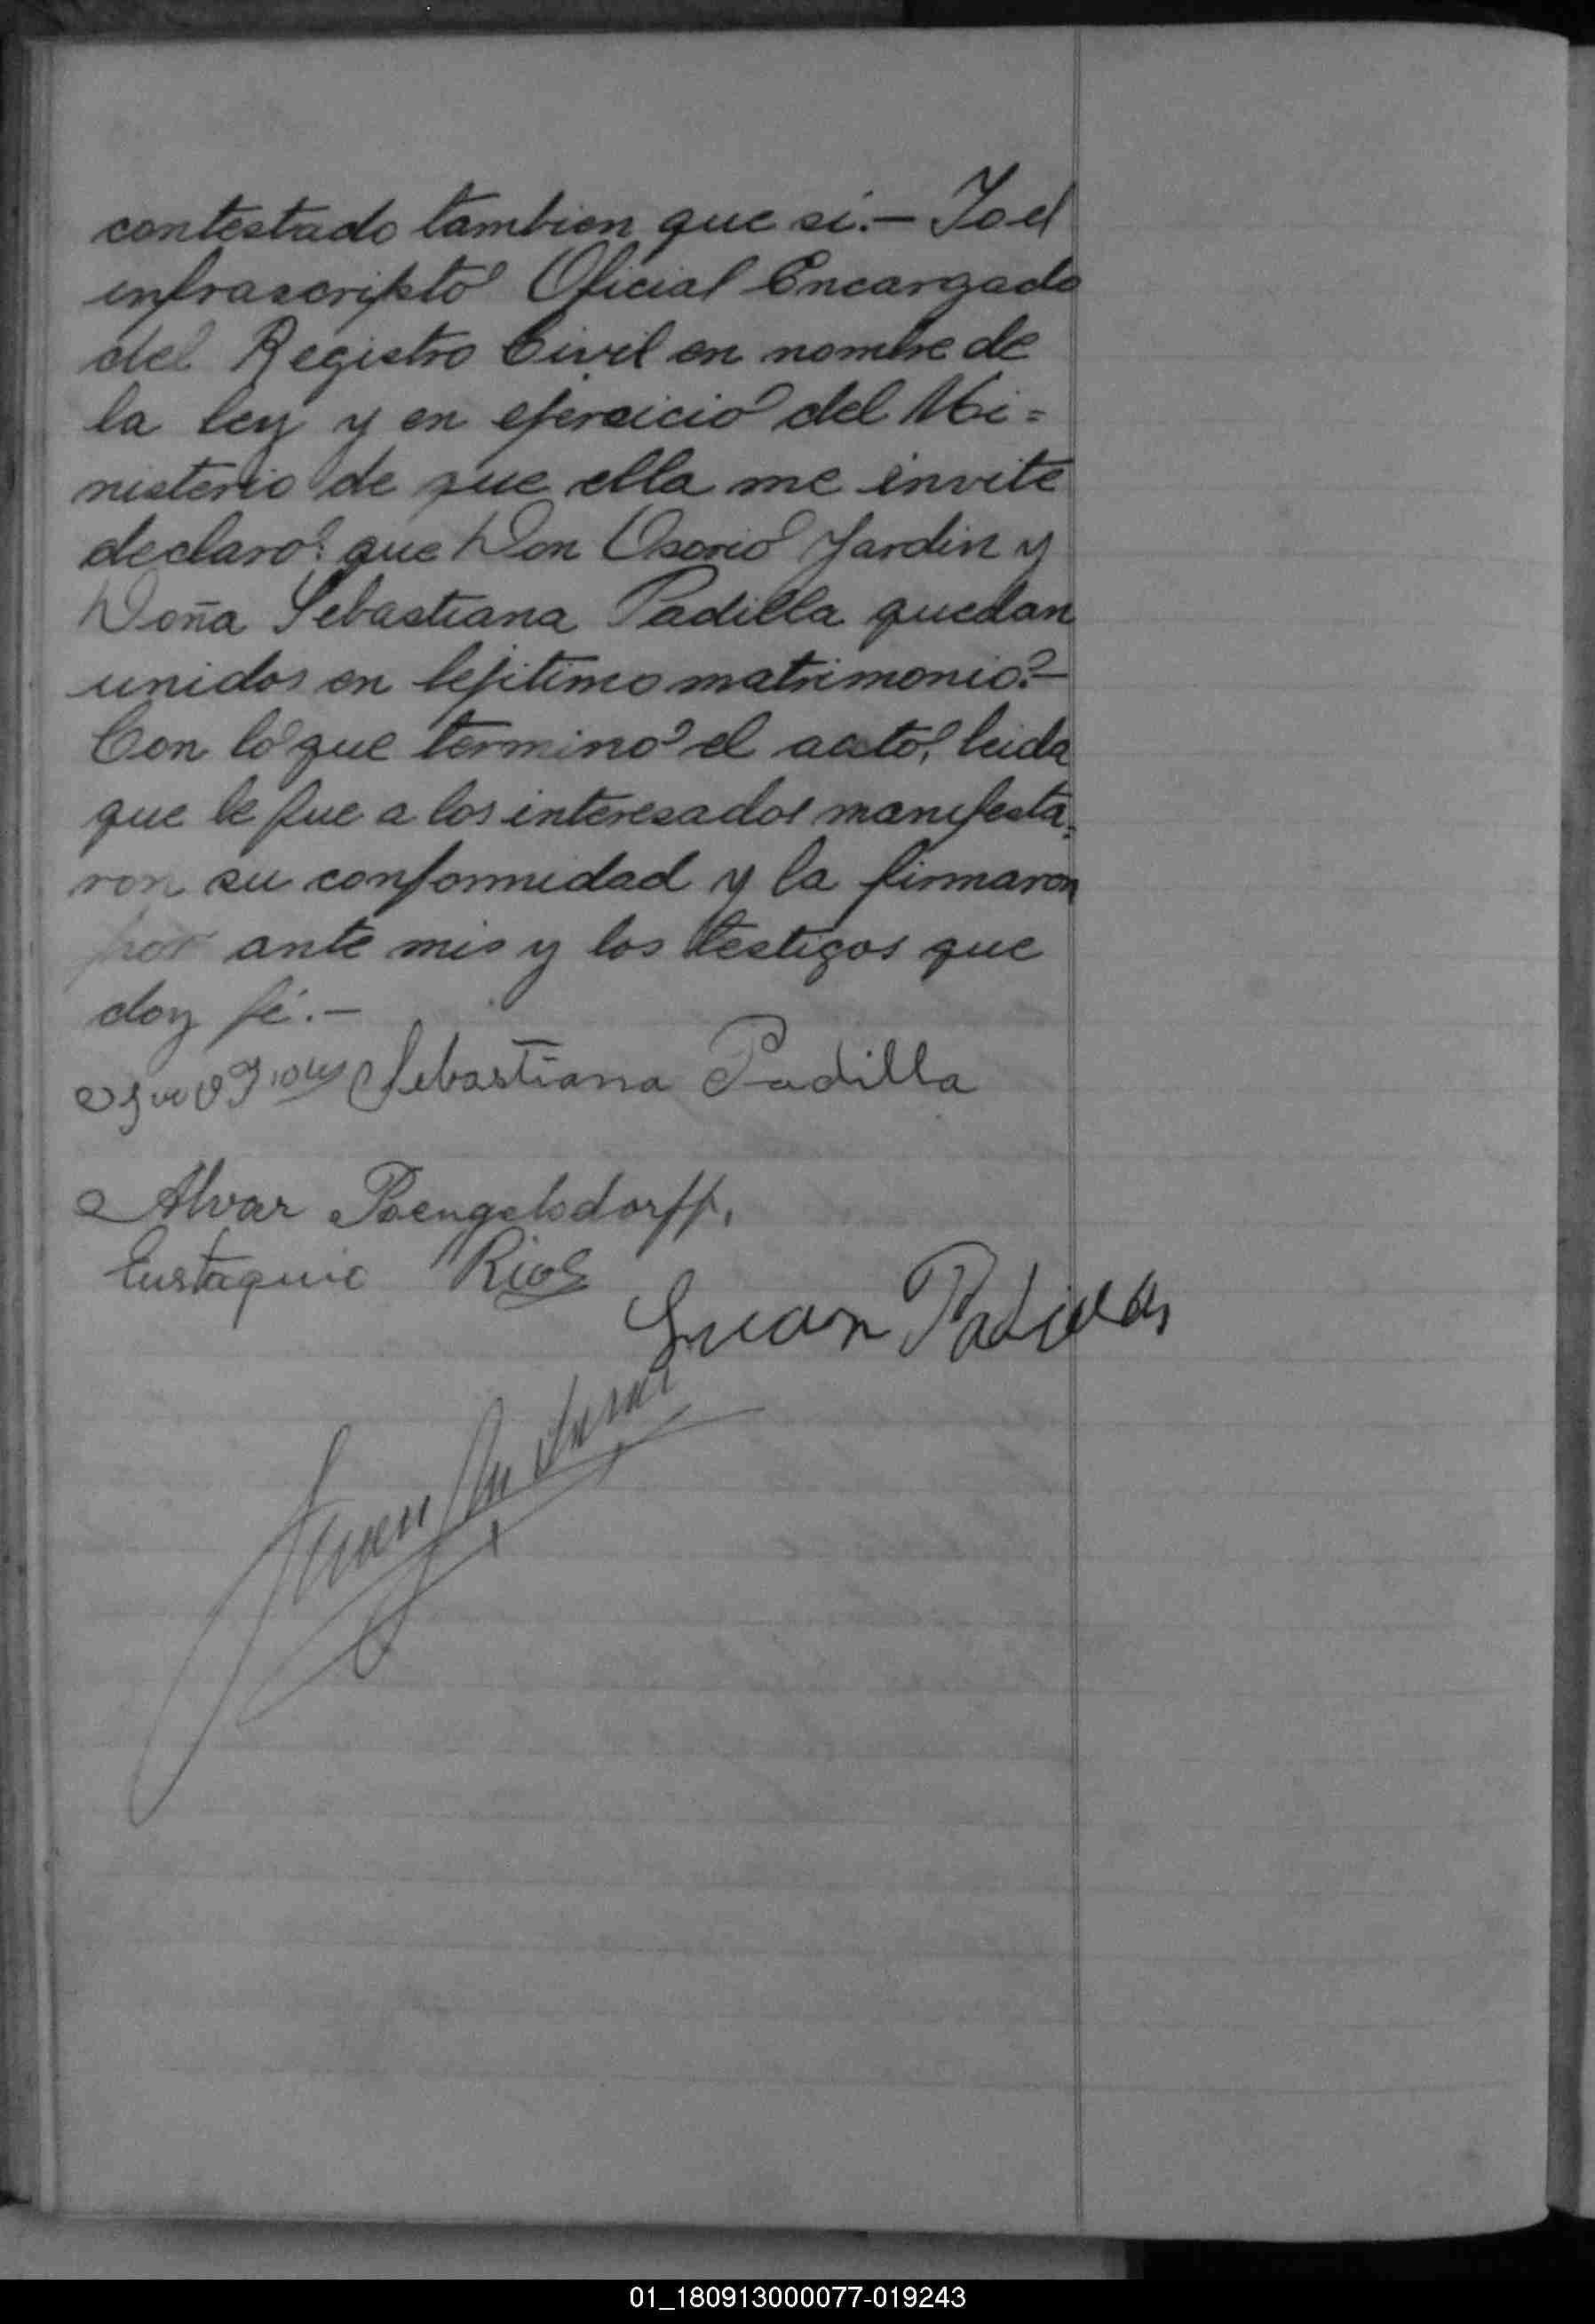 contestado tambien que si.- Yo el
infrascripto Oficial Encargado
del Registro Civil en nombre de
la ley y en ejercicio del Mi=
nisterio de que ella me invite
declaro: que Don Osorio Jardin y
Doña Sebastiana Padilla quedan
unidos en lejitimo matrimonio.-
Con lo que termino el acto, leida
que le fue a los interesados manifesta=
ron su conformidad y la firmaron
por ante mis y los testigos que
doy fé.-
Sebastiana Padilla
Alvar
Eustaquio Rios
Juan Padilla
Juan
01_180913000077-019243